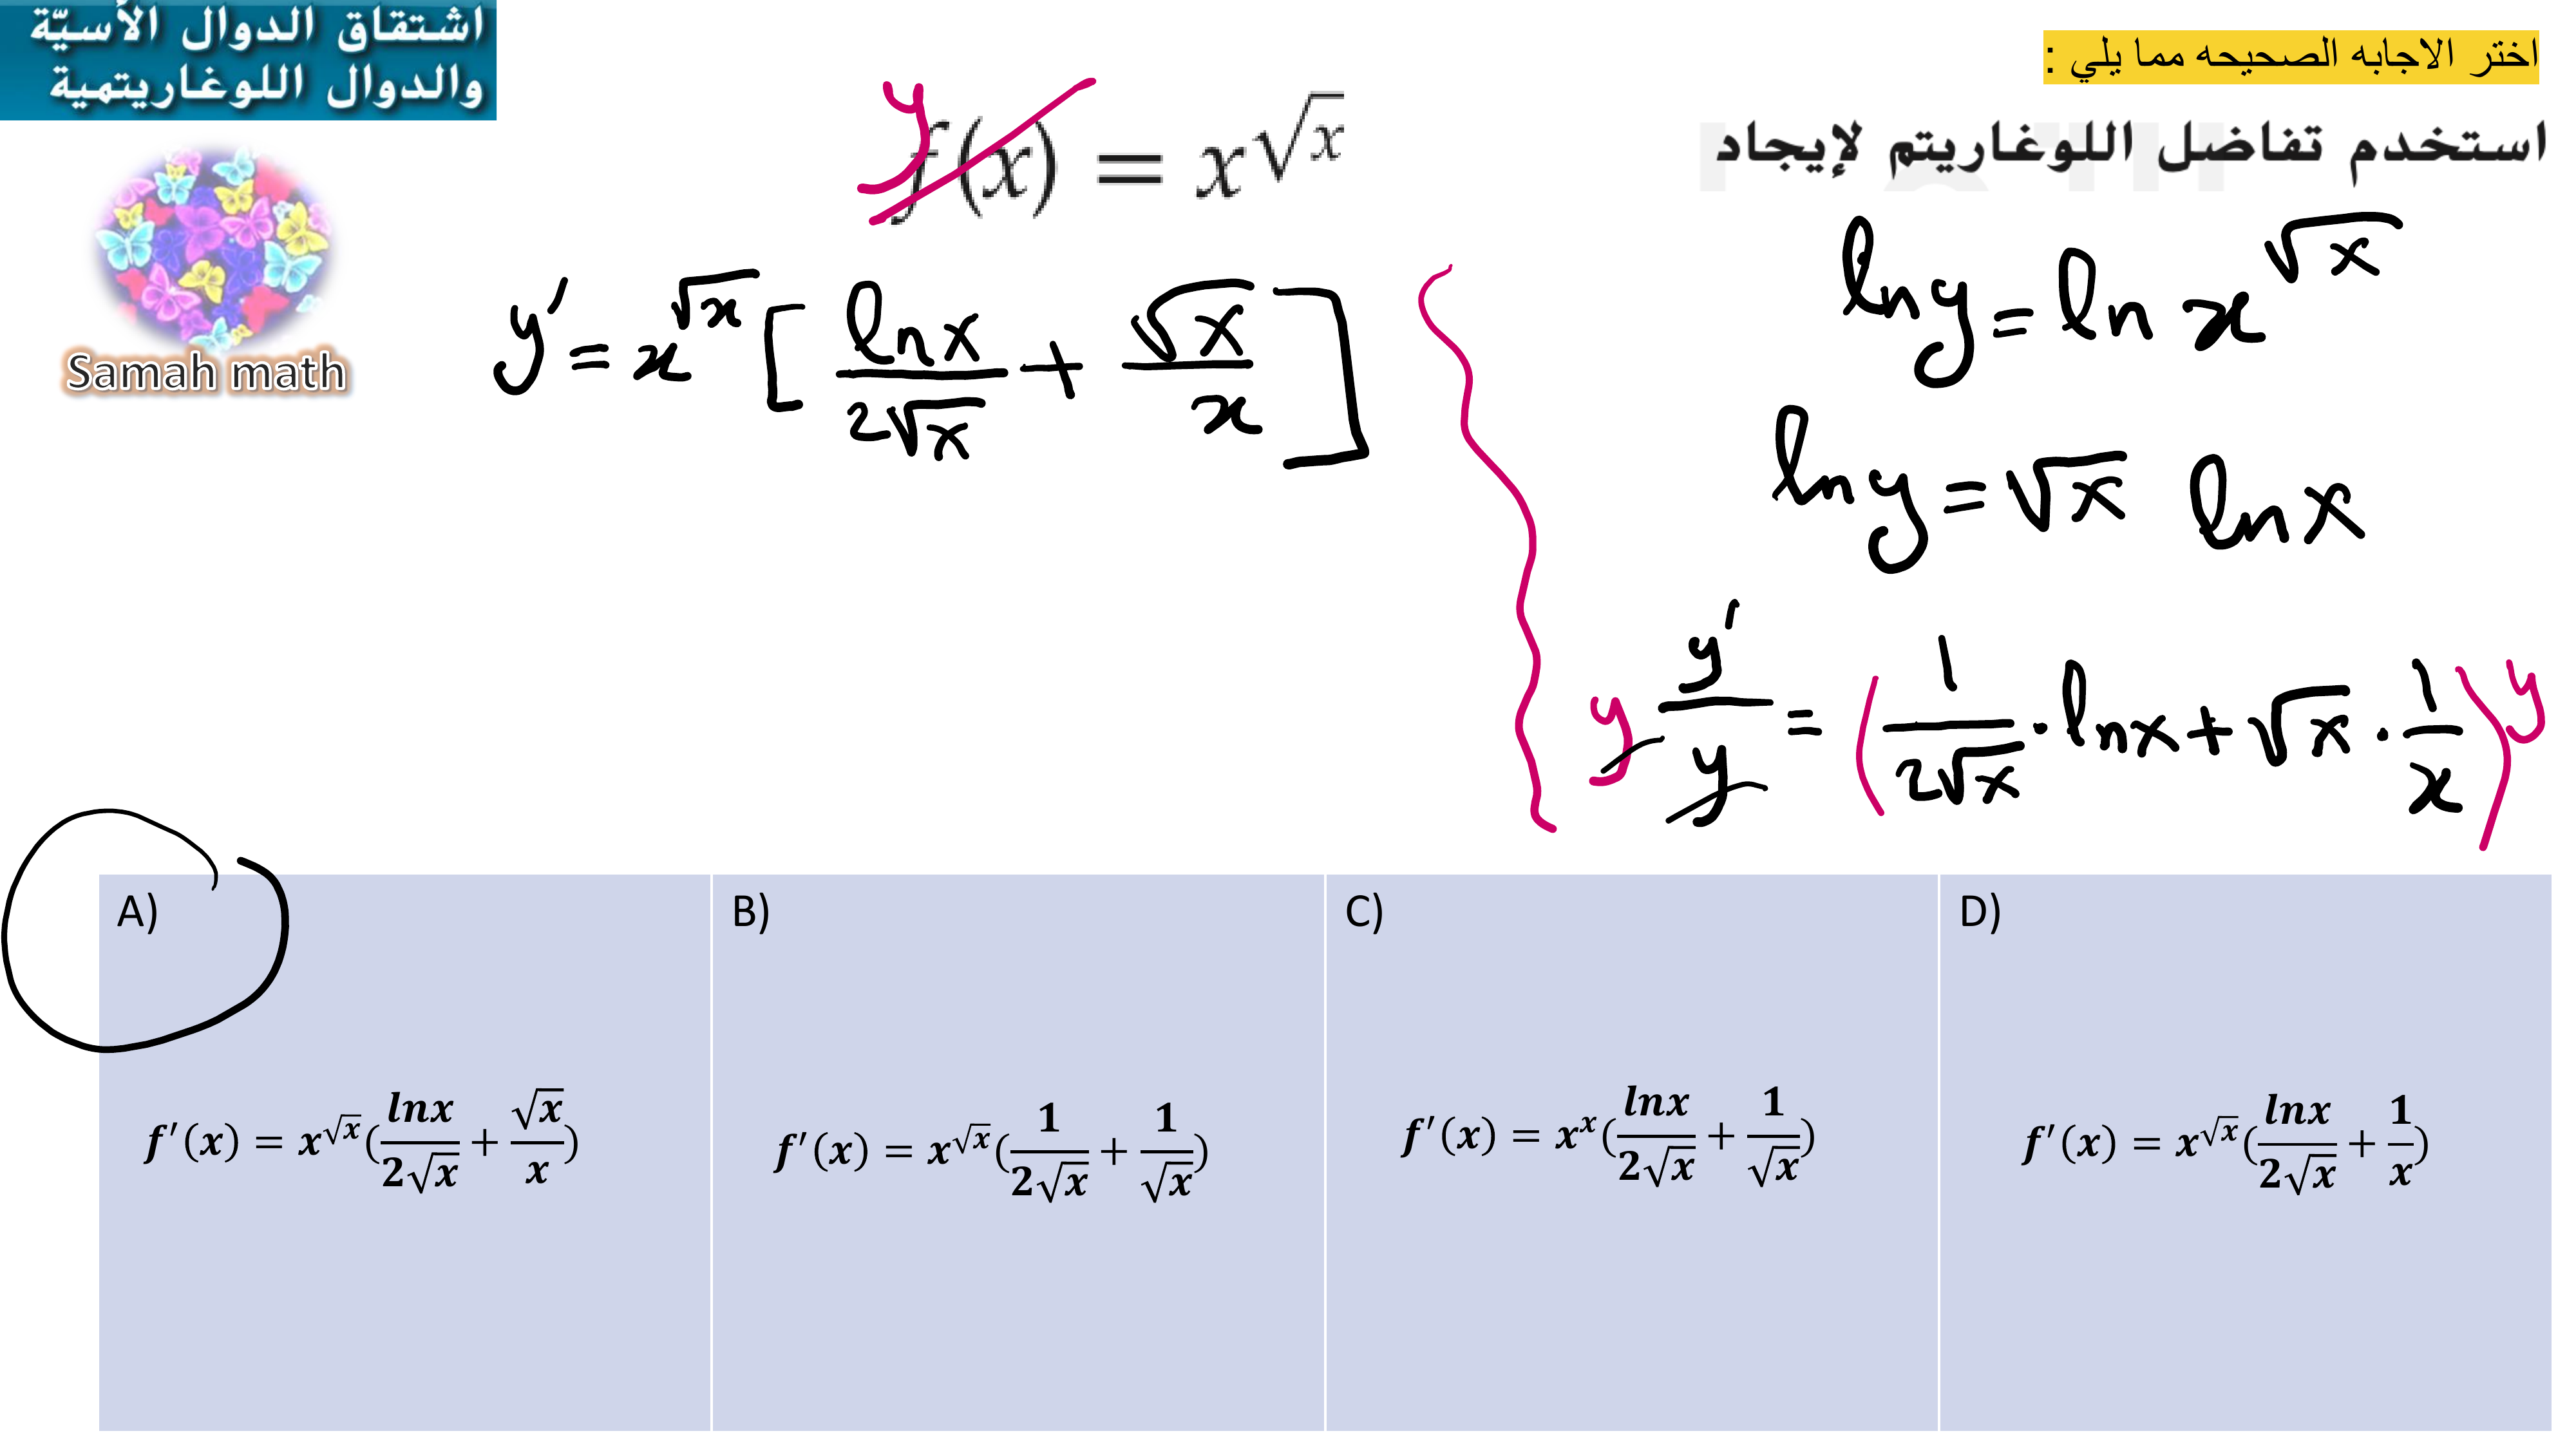 اشتقاق الدوال الأسيّة
والدوال اللوغاريتمية
Samah math
اختر الاجابه الصحيحه مما يلي :
استخدم تفاضل اللوغاريتم لإيجاد
y
f(x) = x^√x
ln y = ln x^√x
ln y = √x ln x
y y'/y = (1/2√x · ln x + √x · 1/x) y
y' = x^√x [ln x/2√x + √x/x]
A)
f'(x) = x^√x(lnx/2√x + √x/x)
B)
f'(x) = x^√x(1/2√x + 1/√x)
C)
f'(x) = x^x(lnx/2√x + 1/√x)
D)
f'(x) = x^√x(lnx/2√x + 1/x)